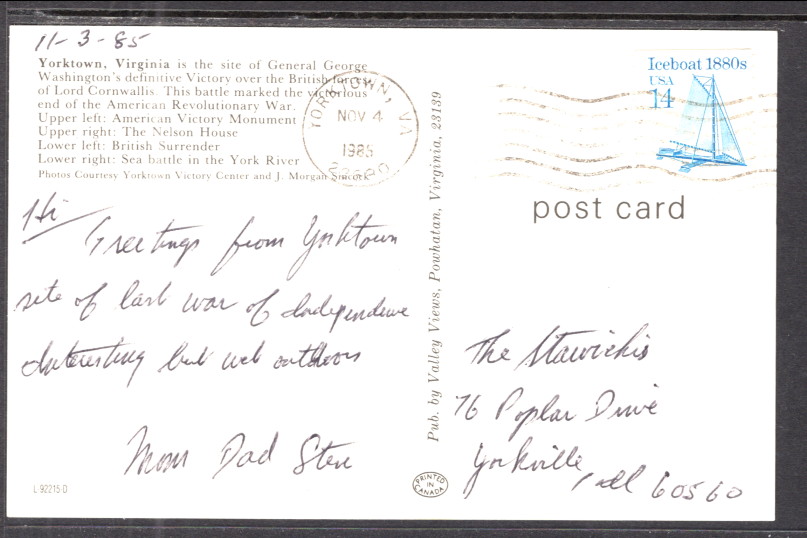 11-3-85
Yorktown, Virginia is the site of General George
Washington's definitive Victory over the British forces
of Lord Cornwallis. This battle marked the victorious
end of the American Revolutionary War.
Upper left: American Victory Monument
Upper right: The Nelson House
Lower left: British Surrender
Lower right: Sea battle in the York River
Photos Courtesy Yorktown Victory Center and J. Morgan
YORKTOWN, VA
NOV 4
1985
Iceboat 1880s
USA
14
post card
Pub. by Valley Views, Powhatan, Virginia, 23139
Hi
Greetings from Yorktown
site of last war of Independence
Interesting but wet outdoors
Mom Dad Steve
The Stawichis
76 Poplar Drive
Yorkville
Ill 60560
L-92215-D
PRINTED
IN
CANADA